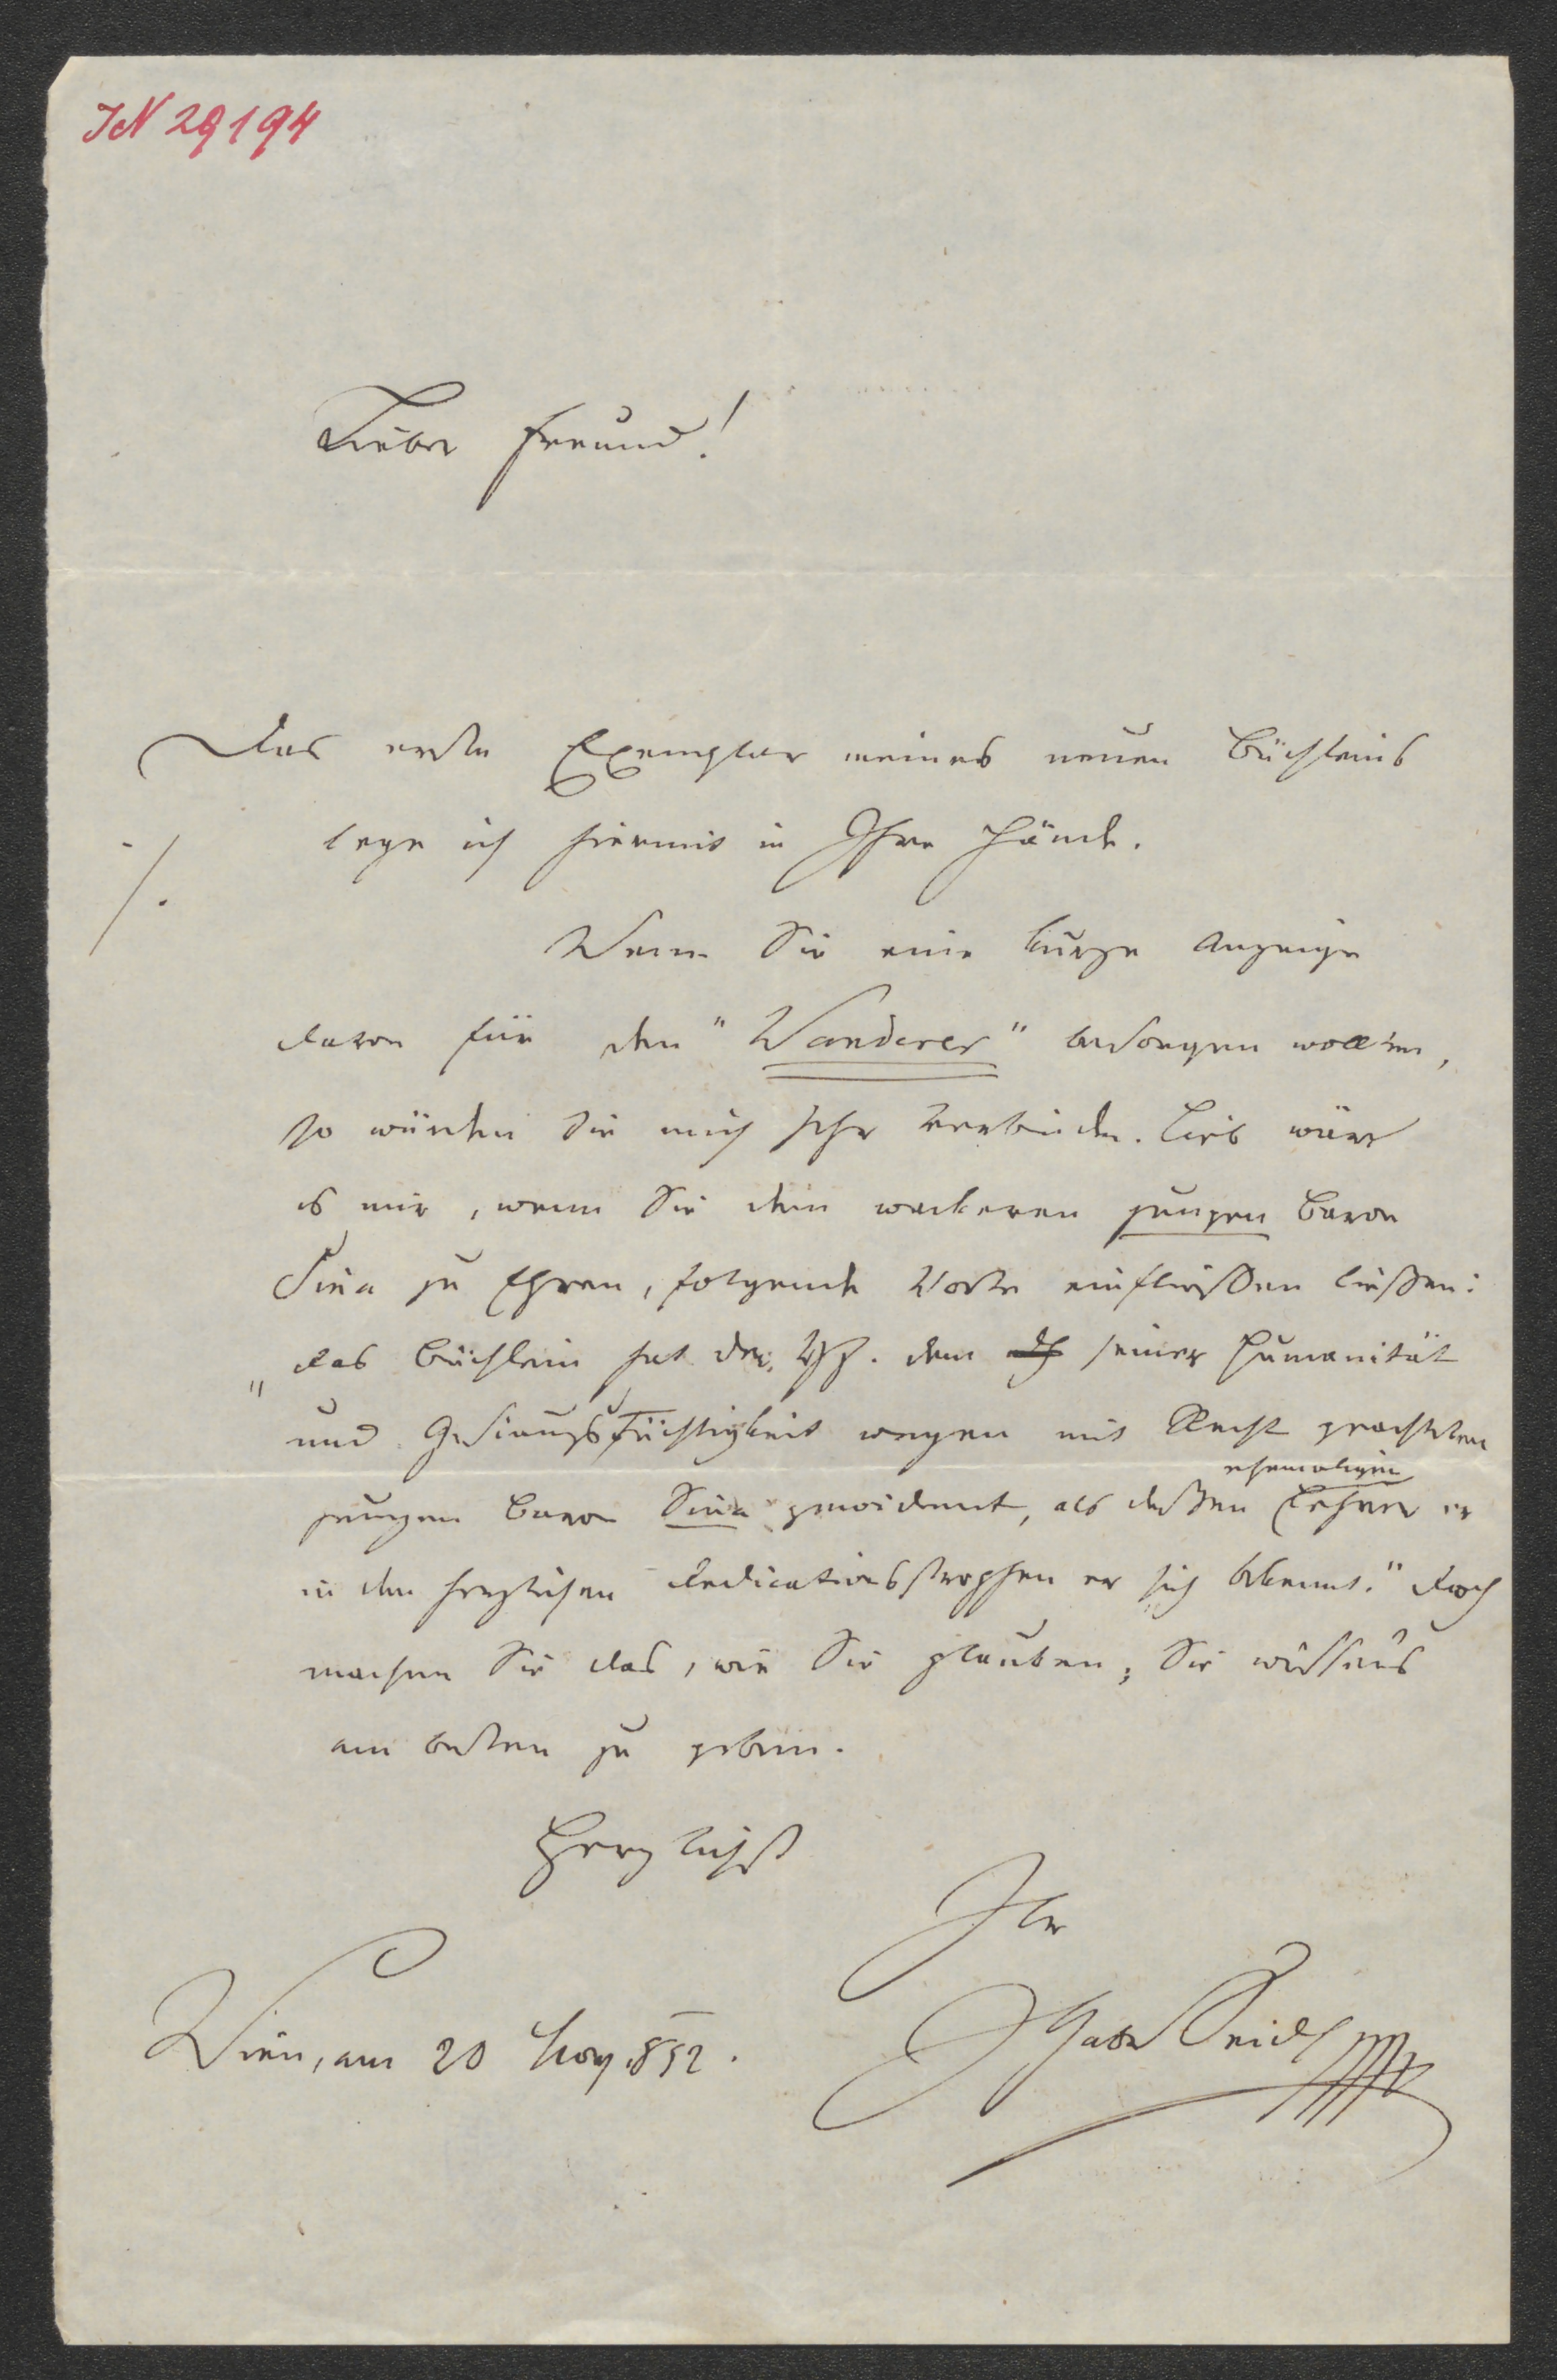 IN 29194
Lieber Freund!
Das erste Exemplar meines neuen Büchleins
lege ich hiermit in Ihre Hände.
./.
Wenn Sie eine kurze Anzeige
davon für den "Wanderer" besorgen wollten,
so würden Sie mich sehr verbinden. Lieb wäre
es mir, wenn Sie dem wackeren jungen Baron
Sina zu Ehren, folgende Worte einfließen ließen:
"das Büchlein hat der Vf. dem seiner Humanität
und Gesinnungstüchtigkeit wegen mit Recht geachteten
ehemaliger
jungen Baron Sina gewidmet, als dessen Lehrer er
in den herzlichen Dedicationsstrophen er sich bekennt." Doch
machen Sie das, wie Sie glauben; Sie wissen's
am besten zu geben.
Herzlichst
Ihr
JGabr Seidl
Wien, am 20 Nov. 852.